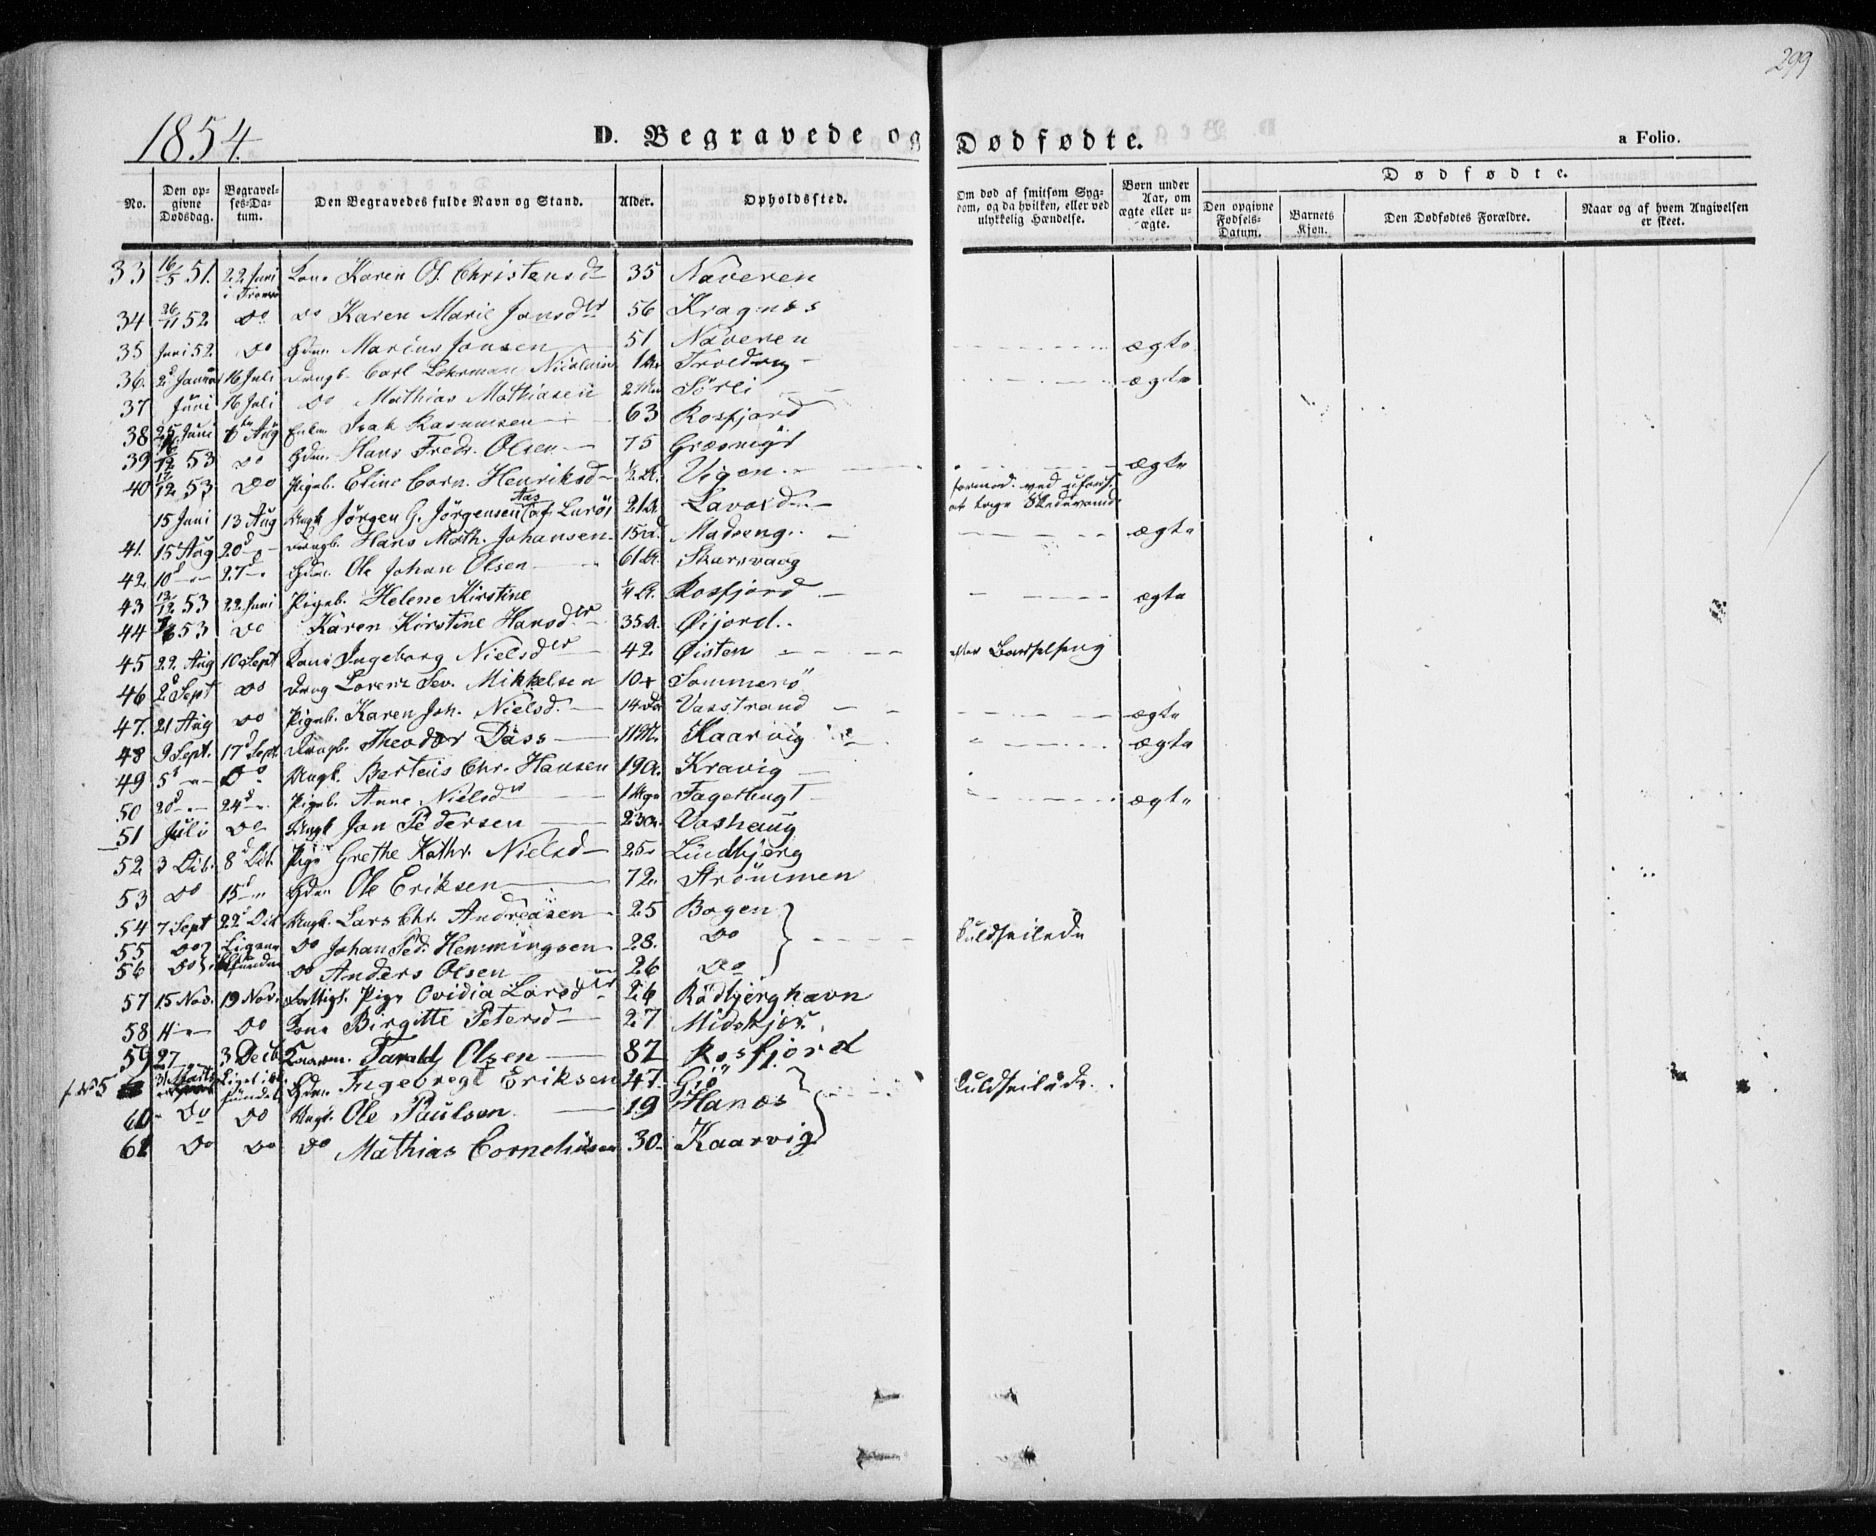 299
1854.
D. Begravede og Dødfødte.
a Folio.
No. Den opgivne Dødsdag. Begravelses-Datum. Den Begravedes fulde Navn og Stand. Alder. Opholdssted. Om død af smitsom Sygdom, og da hvilken, eller ved ulykkelig Hændelse. Børn under Aar, om ægte eller uægte. Dødfødte.
Den opgivne Fødsels-Datum. Barnets Kjøn. Den Dødfødtes Forældre. Naar og af hvem Angivelsen er skeet.
33 16/5 51. 22 Juni i Tromsø Kone Karen Ol. Christensd 35 Naveren
34 26/11 52 Do Do Karen Marie Jonsdtr 56 Kragnæs
35 Juni 52. Do Gdm. Marius Jansen 51 Naveren
36. 2d Januar 16 Juli Drngb. Carl Lehrman Nicolaisen Troldvig ægte
37 Juni 16 Juli Do Mathias Mathiasen Sörli ægte
38 25 Juni 6te Aug Enkm. Isak Rasmussen 63 Rossfjord
39 12 53 Do Gdm. Hans Fredr. Olsen 75 Græsmyr
40 12 53 Do Pigeb. Eline Corn. Henriksd 1/2 A. Vigen ægte
15 Juni 13 Aug Ungk Jörgen G. Jörgensen Aas (af Lurö) 21 A. Lavold formod. ved
41. 15 Aug 20d Drngb. Hans Math. Johansen Madseng ægte
42. 10d 27d Gdm. Ole Johan Olsen 61 A. Skarsvaag
43 12/12 53 22 Juni Pigeb. Helene Kirstine 1/4 A. Rossfjord ægte
44 53 Do Karen Kirstine Hansdtr 35 A. Øijord
45 22. Aug 10 Sept Kone Ingeborg Nielsdtr 42. Øisten efter Barselseng
46 2d Sept Do Drng Lorenz Sev. Mikkelsen 10 Sommerö
47. 21 Aug Do Pigeb. Karen Joh. Nielsd. 14 Vasstrand ægte
48 9 Sept. 17d Sept. Drngb. Theodor Dass Kaarvig ægte
49 5d Do Ungk. Berteus Chr. Hansen 19 A. Kravig
50 20d 24d Pigeb. Anne Nielsdtr Fagerbugt ægte
51 Juli Do Ungk Jon Pedersen 23 A. Vashaug
52. 3 Octb. 8d Oct. Pige Grethe Kathr. Nielsd 25 Lindbjerg
53 Do 15d Gdm Ole Eriksen 72. Strömmen
54 7 Sept 22d Oct Ungk. Lars Chr. Andreasen 25 Bogen
55 Do Ligene Do Johan Ped. Hemmingsen 28. Do Kuldseilede
56 Do Do Anders Olsen 26 Do
57 15 Nov. 19 Nov. Fattigl. Pige Ovidia Larsdtr 26 Rödbjerghavn
58 4 Do Kone Birgitte Petersd 27 Midskjær.
59 27 3 Decb Kaarm. Tarald Olsen 82 Rossfjord
31 Marts Liget i Gdm. Ingebregt Eriksen 47. Gjö
60 Do Do Ungk. Ole Paulsen 19 Hanæs Kuldseilede
61 Do Do Do Mathias Corneliusen 30. Kaarvig